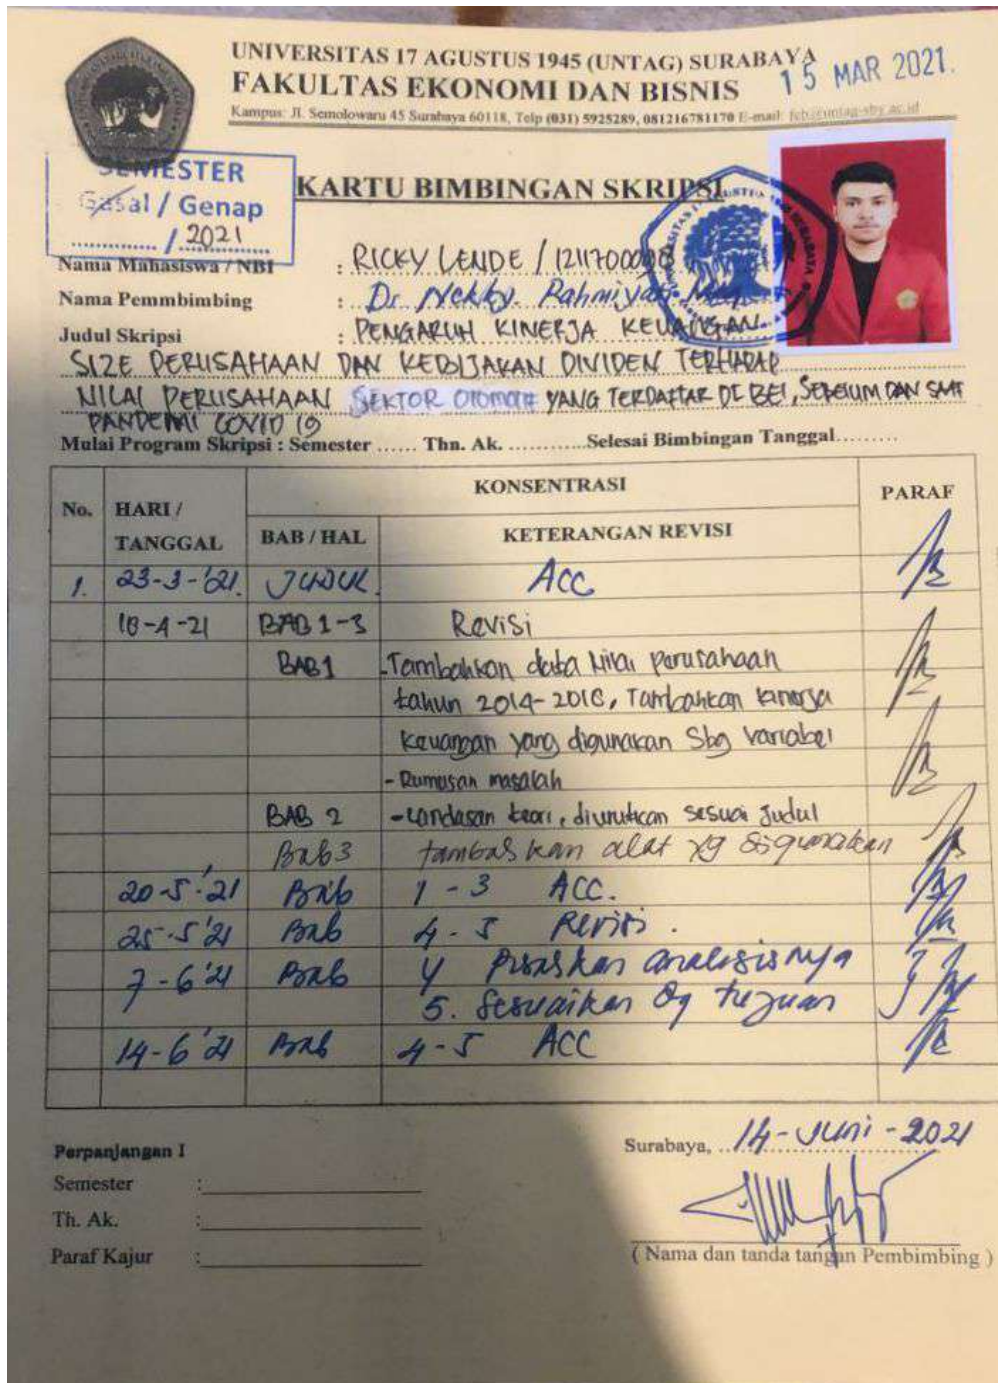 UNIVERSITAS 17 AGUSTUS 1945 (UNTAG) SURABAYA
15 MAR 2021.
FAKULTAS EKONOMI DAN BISNIS
Kampus: Jl. Semolowaru 45 Surabaya 60118, Telp (031) 5925289, 081216781170 E-mail: feb@untag-sby.ac.id
SEMESTER
Gasal / Genap
/ 2021
KARTU BIMBINGAN SKRIPSI
Nama Mahasiswa / NBI : RICKY LENDE /
Nama Pemmbimbing : Dr. Nekky Rahmiyati
Judul Skripsi : PENGARUH KINERJA KEUANGAN
SIZE PERUSAHAAN DAN KEBIJAKAN DIVIDEN TERHADAP
NILAI PERUSAHAAN SEKTOR OTOMOTIF YANG TERDAFTAR DI BEI, SEBELUM DAN SAAT
PANDEMI COVID 19
Mulai Program Skripsi : Semester ...... Thn. Ak. ............Selesai Bimbingan Tanggal.........
No. HARI / TANGGAL KONSENTRASI PARAF
BAB / HAL KETERANGAN REVISI
1. 23-3-'21. JUDUL ACC
-4-21 BAB 1-3 Revisi
BAB 1 - Tambahkan data Nilai perusahaan
tahun 2014- , Tambahkan kinerja
keuangan yang digunakan Sbg Variabel
- Rumusan masalah
BAB 2 - Landasan teori, diurutkan sesuai Judul
Bab 3 tambahkan alat yg digunakan
20-5-'21 Bab 1 - 3 ACC.
25-5'21 Bab 4 - 5 Revisi.
7-6'21 Bab 4 analisisnya
5. Sesuaikan dg tujuan
14-6'21 Bab 4-5 ACC
Perpanjangan I
Surabaya, 14-Juni-2021
Semester :
Th. Ak. :
Paraf Kajur :
( Nama dan tanda tangan Pembimbing )